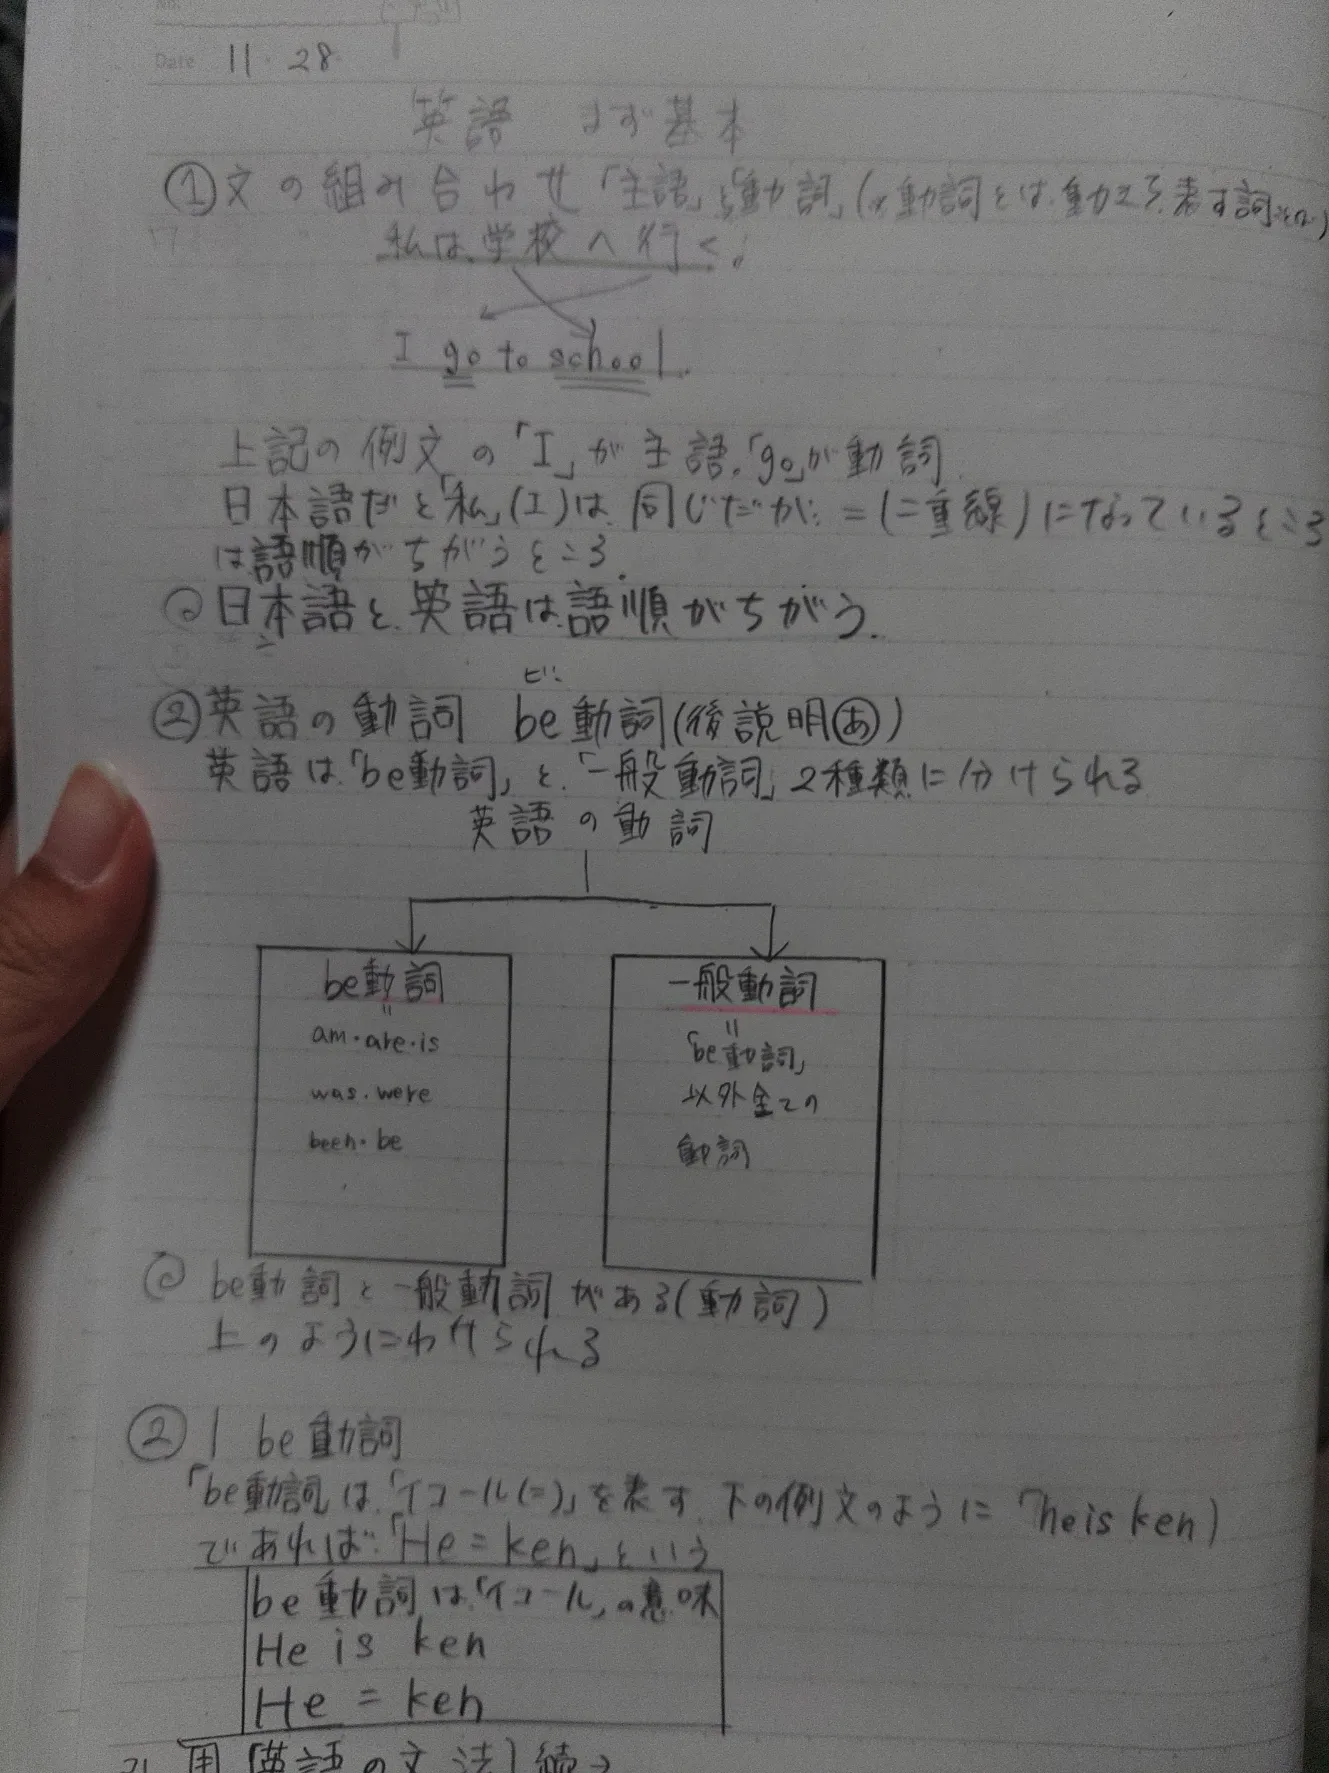 Date 11・28
英語 まず基本
①文の組み合わせ「主語」と「動詞」(※動詞とは、動きを表す詞
私は、学校へ行く。
I go to school.
上記の例文の「I」が主語。「go」が動詞
日本語だと「私」(I)は、同じだが、=(二重線)になっているところ
は語順がちがうところ.
日本語と、英語は、語順がちがう.
ビー
②英語の動詞 be動詞(後説明あ)
英語は「be動詞」と、「一般動詞」2種類に分けられる
英語の動詞
be動詞
=
am・are・is
was・were
been・be
一般動詞
=
「be動詞」
以外全ての
動詞
be動詞と一般動詞がある(動詞)
上のようにわけられる
② 1 be動詞
「be動詞」は、「イコール(=)」を表す、下の例文のように「he is ken)
であれば「He = ken」という
be動詞は、「イコール」の意味
He is ken
He = ken
「英語の文法」続